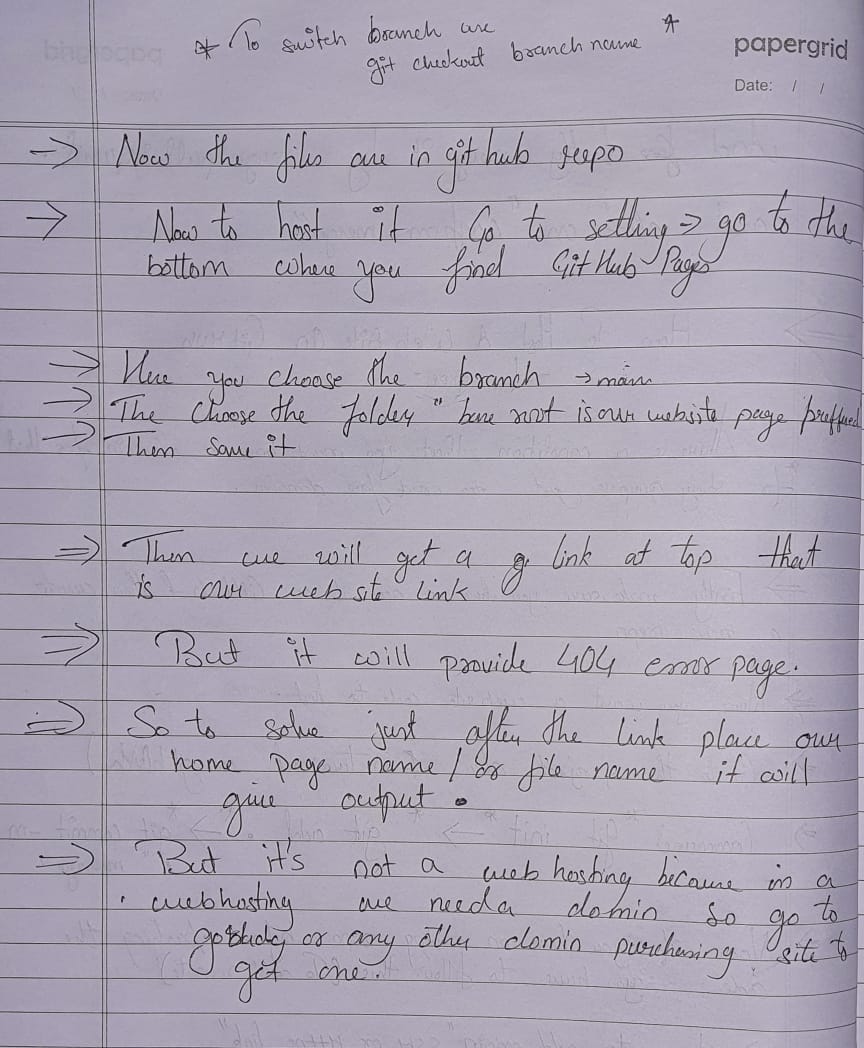 * To switch branch use *
git checkout branch name
papergrid
Date: / /
→ Now the files are in git hub repo
→ Now to host it Go to setting → go to the
bottom where you find GitHub Pages
→ Here you choose the branch → main
→ The Choose the folder " here root is our website page preffered
→ Then Save it
⇒ Then we will get a g link at top that
is our web site link
⇒ But it will provide 404 error page.
⇒ So to solve just after the link place our
home page name / or file name it will
give output .
⇒ But it's not a web hosting because in a
webhosting we need a domin so go to
or any other domin purchasing site to
get one.